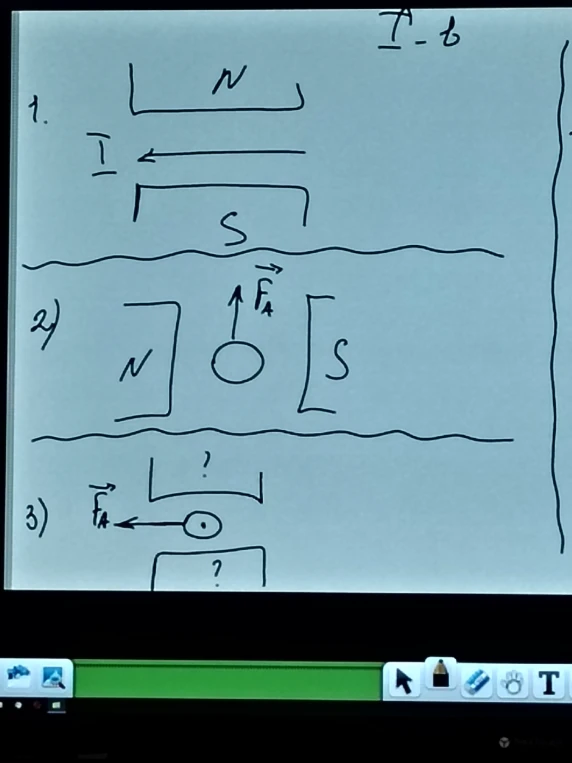 I - b
1.
N
I
S
2)
F_A
N
S
3)
?
F_A
?
T